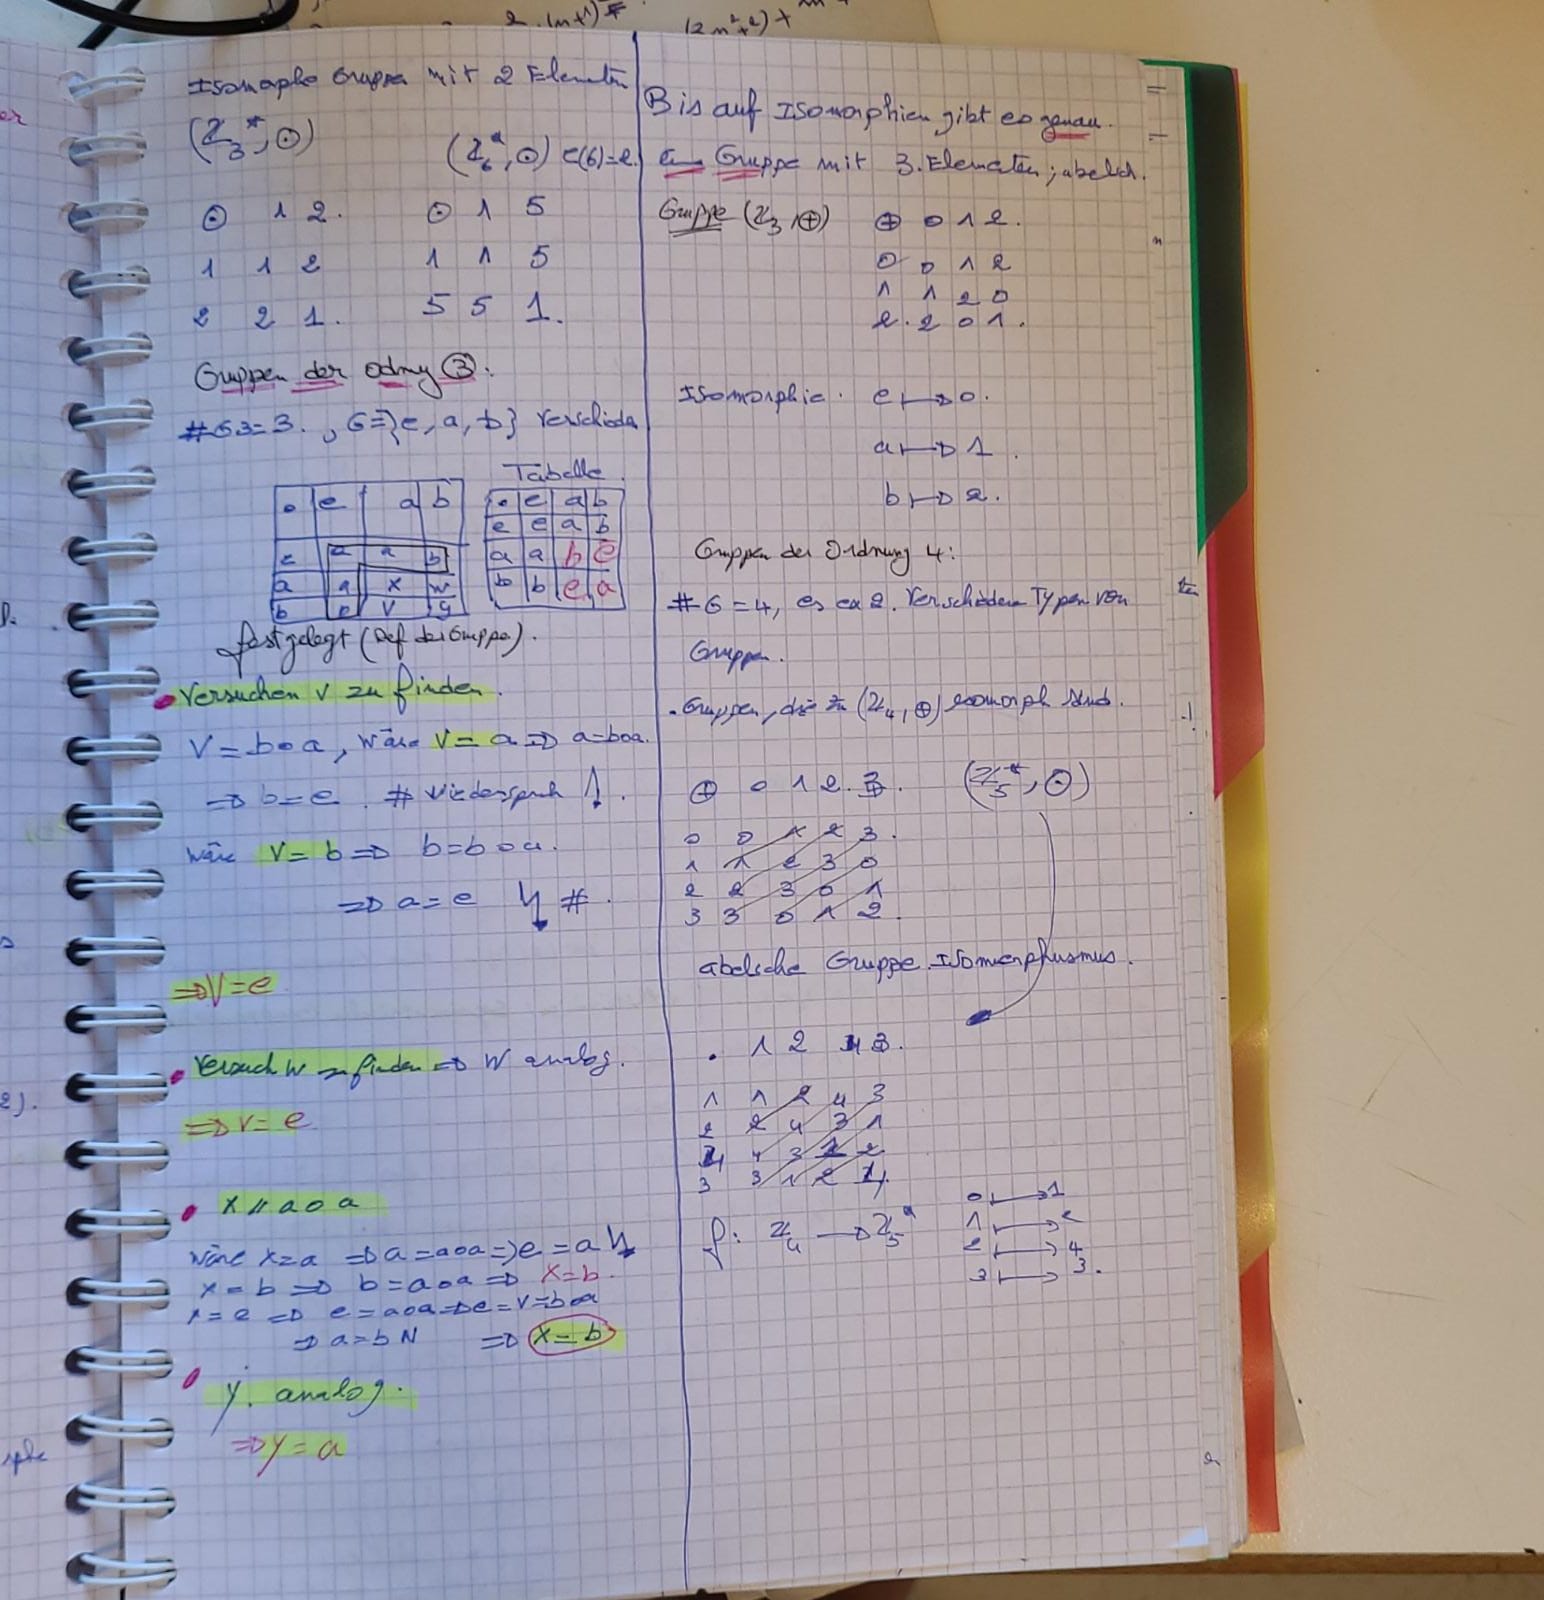 2.(n+1)
(2n²+2)+
Isomorphe Gruppe mit 2 Elementen
(Z₃*, ⊙)
(Z₆*, ⊙) e(6)=2.
⊙ 1 2.
1 1 2
2 2 1.
⊙ 1 5
1 1 5
5 5 1.
Gruppen der Odnug ③:
#G3=3. , G={e, a, b} verschieden
Tabelle.
∘ e a b
e a a b
a a x w
b e v y
∘ e a b
e e a b
a a b e
b b e a
festgelegt (Def der Gruppe).
• Versuchen v zu finden.
V=b∘a, wäre V=a ⇒ a=b∘a.
⇒ b=e. # Viederspruch ↯.
wäre V=b ⇒ b=b∘a.
⇒ a=e ↯ #.
⇒ V=e
• Versuch W zu finden ⇒ W analog.
⇒ v=e
• x = a∘a
wäre x=a ⇒ a=a∘a ⇒ e=a ↯
x=b ⇒ b=a∘a ⇒ x=b.
x=e ⇒ e=a∘a ⇒ e=v=b∘a
⇒ a=b N ⇒ x=b
• y. analog.
⇒ y=a
Bis auf Isomorphien gibt es genau.
eine Gruppe mit 3. Elementen; abelsch.
Gruppe (Z₃, ⊕)
⊕ 0 1 2.
0 0 1 2
1 1 2 0
2. 2 0 1.
Isomorphie. e ↦ 0.
a ↦ 1.
b ↦ 2.
Gruppen der Ordnung 4:
#G=4, es ex 2. Verschiedene Typen von
Gruppen.
. Gruppen, die zu (Z₄, ⊕) isomorph sind.
⊕ 0 1 2. 3. (Z₅*, ⊙)
0 0 1 2 3.
1 1 2 3 0
2 2 3 0 1
3 3 0 1 2.
abelsche Gruppe. Isomorphismus.
. 1 2 4 3.
1 1 2 4 3
2 2 4 3 1
4 4 3 1 2
3 3 1 2 4.
f: Z₄ → Z₅*
0 ↦ 1
1 ↦ 2
2 ↦ 4
3 ↦ 3.